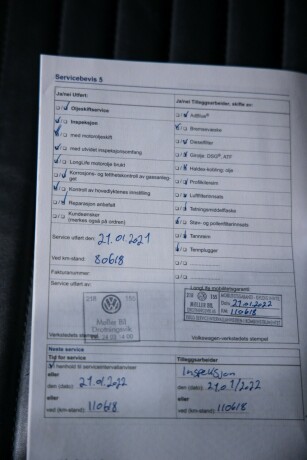 Servicebevis 5
Ja/nei Utført:
Oljeskiftservice
Inspeksjon
med motoroljeskift
med utvidet inspeksjonsomfang
LongLife motorolje brukt
Korrosjons- og tetthetskontroll av gassanlegget
Kontroll av hovedlyktenes innstilling
Reparasjon anbefalt
Kundeønsker
(merkes også på ordren)
Service utført den: 21.01.2021
Ved km-stand: 80618
Fakturanummer:
Service utført av:
Møller Bil
Verkstedets stempel
Ja/nei Tilleggsarbeider, skifte av:
AdBlue®
Bremsevæske
Dieselfilter
Girolje, DSG®, ATF
Haldex-kobling, olje
Luftfilterinnsats
Støv- og pollenfilterinnsats
Tannreim
Tennplugger
LongLife mobilitetsgaranti
21.01.2022
110618
Volkswagen-verkstedets stempel
Neste service
Tid for service
I henhold til serviceintervallviser
eller
den (dato): 21.01.2022
eller
ved (km-stand): 110618
Tilleggsarbeider
Inspeksjon
den (dato): 21.01/2022
eller
ved (km-stand): 110618